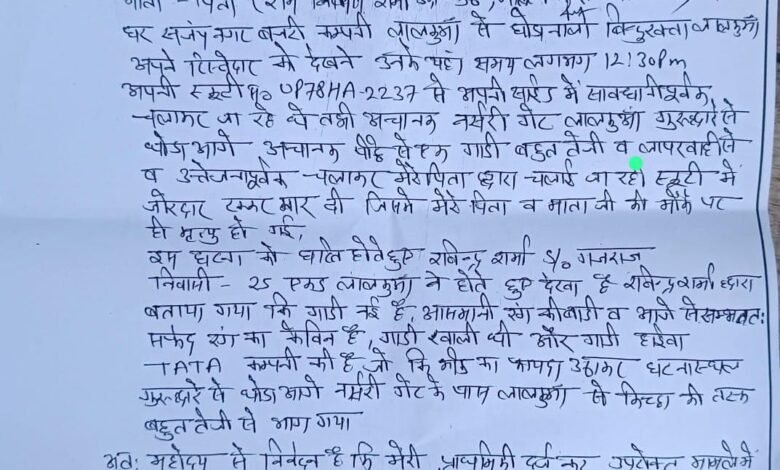 माता - पिता
घर संजय नगर बंगाली कम्पनी लालकुआँ से घोडानाला बिन्दुखत्ता लालकुआँ
अपने रिश्तेदार को देखने उनके यहां समय लगभग 12:30pm
अपनी स्कूटी no UP78HA-2237 से अपनी साईड में सावधानीपूर्वक
चलाकर जा रहे थे तभी अचानक नर्सरी गेट लालकुआँ गुरुद्वारे से
थोडा आगे अचानक पीछे से एक गाडी बहुत तेजी व लापरवाही से
व उत्तेजनापूर्वक चलाकर मेरे पिता द्वारा चलाई जा रही स्कूटी में
जोरदार टक्कर मार दी जिससे मेरे पिता व माता जी की मौके पर
ही मृत्यु हो गई,
इस घटना को घटित होते हुए रविन्द्र शर्मा S/o गजराज
निवासी - 25 एकड लालकुआँ ने होते हुए देखा है रविन्द्र शर्मा द्वारा
बताया गया कि गाडी नई है, आसमानी रंग की बाडी व आगे से सम्भवतः
सफेद रंग का केबिन है, गाडी खाली थी और गाडी हाईवा
TATA कम्पनी की है जो कि भीड का फायदा उठाकर घटनास्थल
गुरुद्वारे से थोडा आगे नर्सरी गेट के पास लालकुआँ से किच्छा की तरफ
बहुत तेजी से भाग गया
अतः महोदय से निवेदन है कि मेरी प्राथमिकी दर्ज कर उपरोक्त मामले में